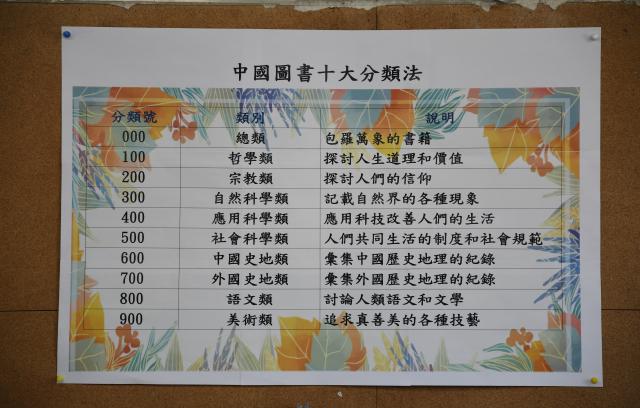 中國圖書十大分類法
分類號 類別 說明
000 總類 包羅萬象的書籍
100 哲學類 探討人生道理和價值
200 宗教類 探討人們的信仰
300 自然科學類 記載自然界的各種現象
400 應用科學類 應用科技改善人們的生活
500 社會科學類 人們共同生活的制度和社會規範
600 中國史地類 彙集中國歷史地理的紀錄
700 外國史地類 彙集外國歷史地理的紀錄
800 語文類 討論人類語文和文學
900 美術類 追求真善美的各種技藝